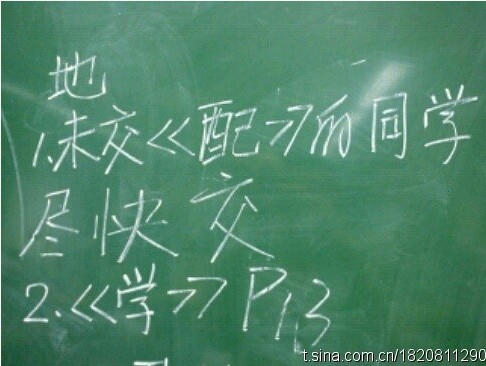 地
1.未交<<配>>的同学
尽快交
2.<<学>>P13
t.sina.com.cn/1820811290